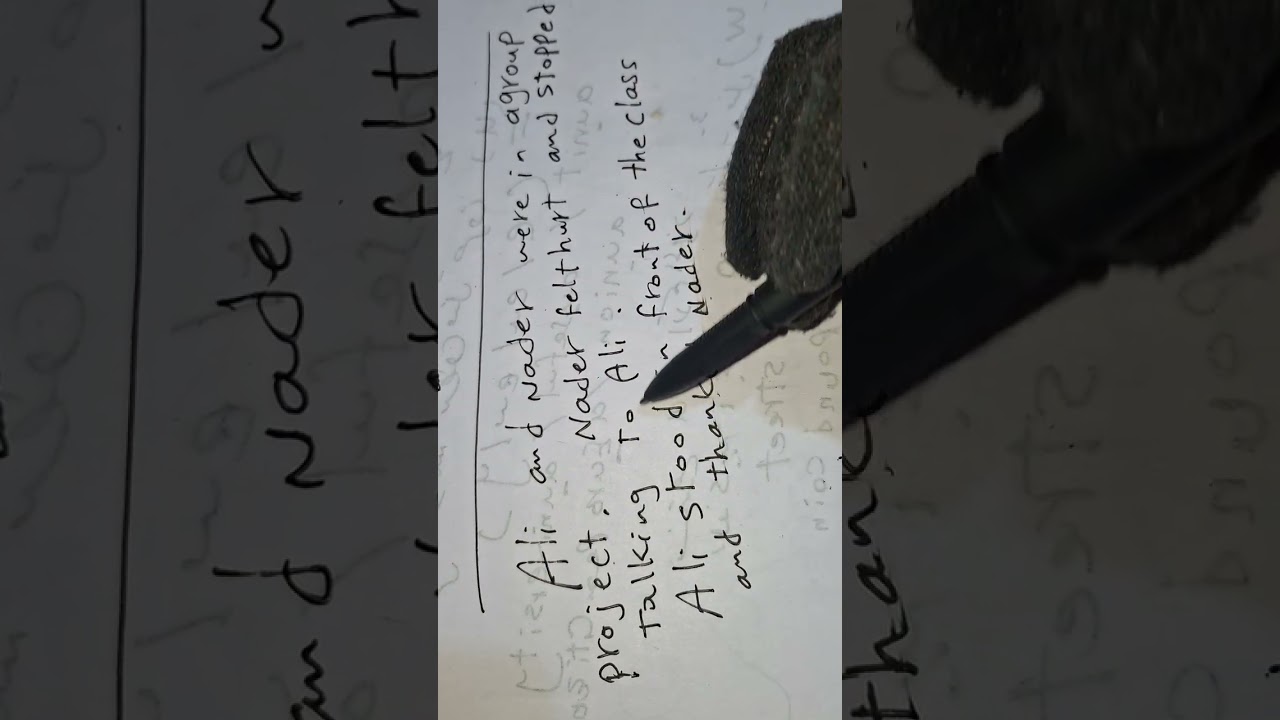 Ali and Nader were in agroup
project. Nader felt hurt and stopped
talking To Ali.
Ali stood front of the class
and Nader.